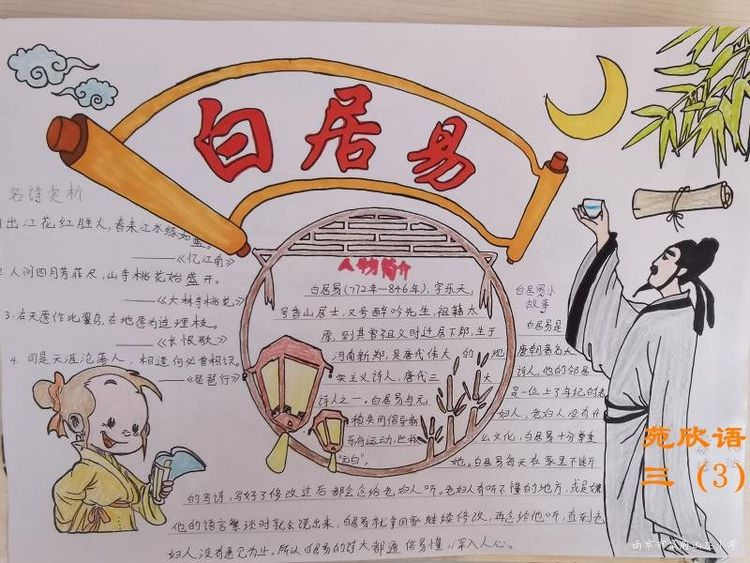 白居易
名诗赏析
日出江花红胜火,春来江水绿如蓝。
——《忆江南》
2. 人间四月芳菲尽,山寺桃花始盛开。
——《大林寺桃花》
3. 在天愿作比翼鸟,在地愿为连理枝。
——《长恨歌》
4. 同是天涯沦落人,相逢何必曾相识。
——《琵琶行》
人物简介
白居易(772年-846年),字乐天,
号香山居士,又号醉吟先生,祖籍太
原,到其曾祖父时迁居下邽,生于
河南新郑,是唐代伟大的现
实主义诗人,唐代三大
诗人之一。白居易与元
稹共同倡导新
乐府运动,世称
"元白",
白居易小
故事
白居易是
唐朝著名大
诗人,他的邻居
是一位上了年纪的老
妇人,老妇人没有什
么文化,白居易十分尊重
她。白居易每天在家里不断
的写诗,写好了修改过后都会念给老妇人听。老妇人有听不懂的地方,或是嫌
他的语言繁琐时就会说出来,白居易就拿回家继续修改,再念给他听,直到老
妇人没有意见为止。所以白居易的诗大都通俗易懂,深入人心。
苑欣语
三(3)